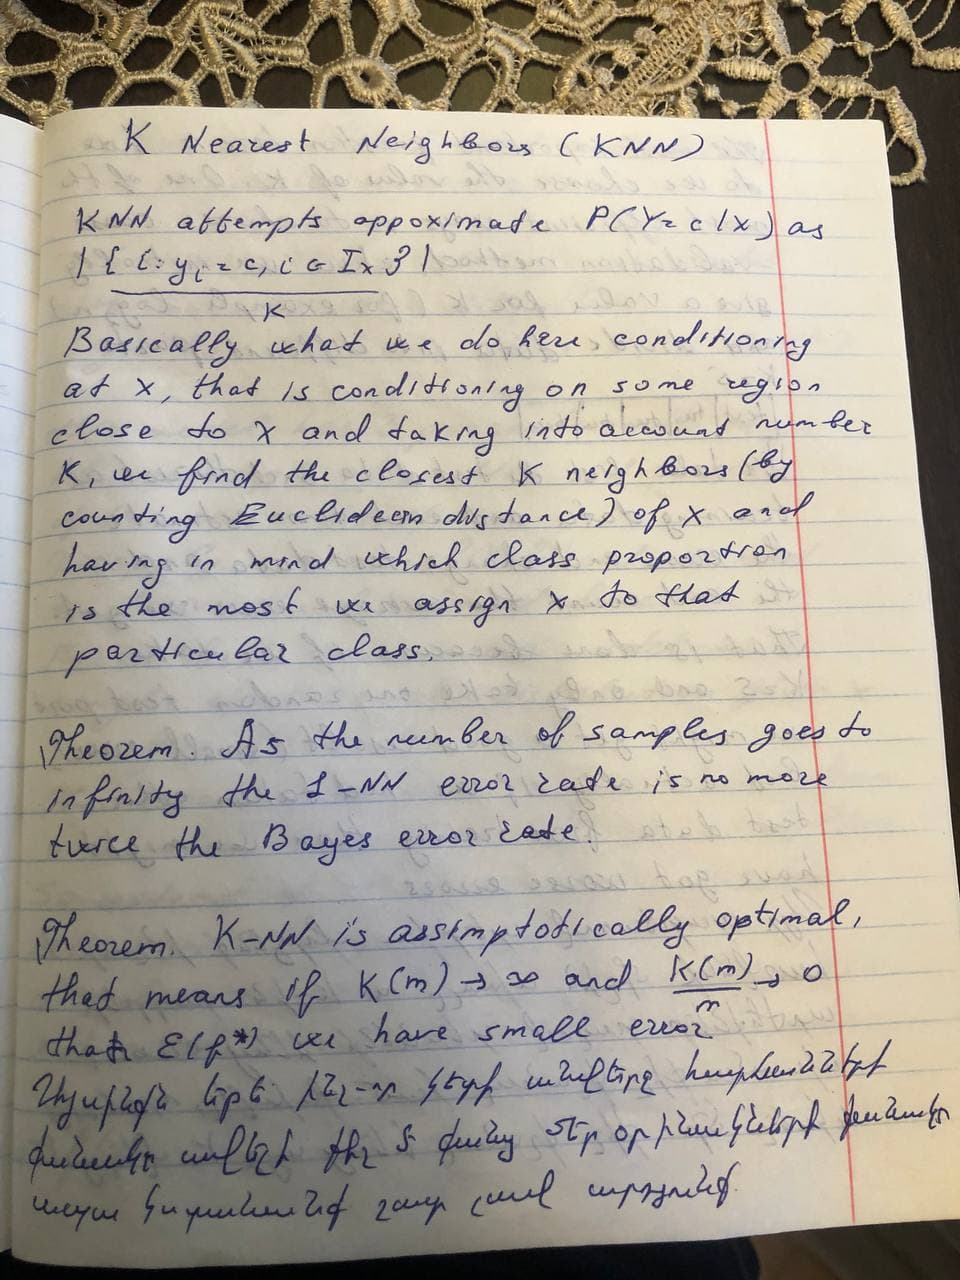 K Nearest Neighbors (KNN)
KNN attempts appoximate P(Y=c|x) as
|{i: yi = c, i ∈ Ix}|
K
Basically what we do here conditioning
at x, that is conditioning on some region
close to x and taking into account number
K, we find the closest K neighbors (by
counting Euclidean distance) of x and
having in mind which class proportion
is the most we assign x to that
particular class.
Theorem. As the number of samples goes to
infinity the 1-NN error rate is no more
twice the Bayes error rate.
Theorem. K-NN is assimptotically optimal,
that means if K(m) → ∞ and K(m)/m → 0
that ε(f*) we have small error
Այսինքն եթե ինչ-որ կետի ամենից հարևանների
քանակը ավելի քիչ է քան մեր օրինակների քանակը
ապա կստանանք շատ լավ արդյունք